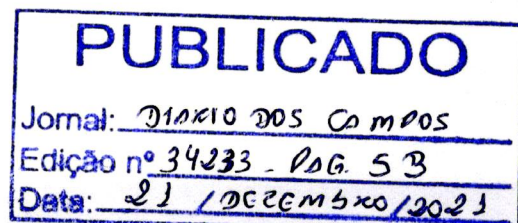 PUBLICADO
Jornal: DIARIO DOS CAMPOS
Edição nº 34233 - PAG. 5B
Data: 21 / DEZEMBRO / 2021